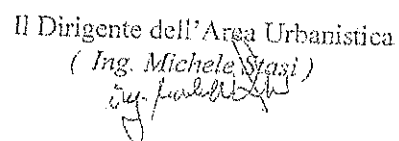 Il Dirigente dell'Area Urbanistica
( Ing. Michele Stasi )
ing.